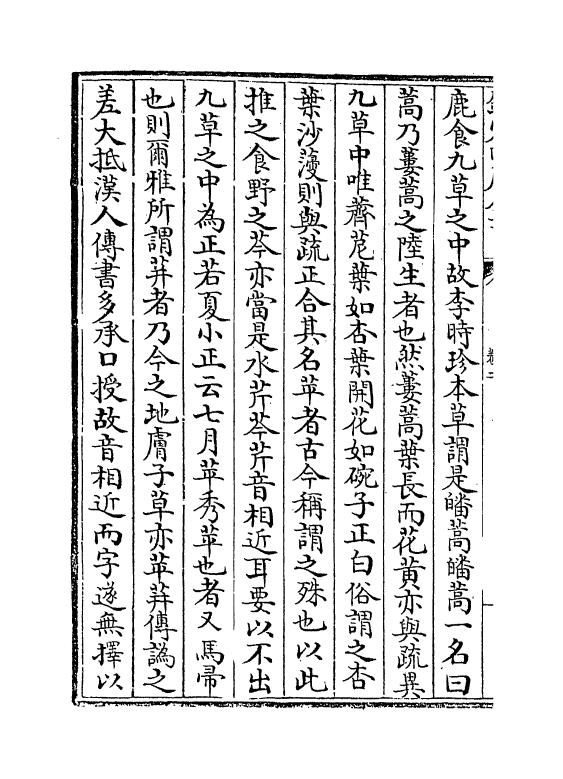 鹿食九草之中故李時珍本草謂是皤蒿皤蒿一名曰
蒿乃蔞蒿之陸生者也然蔞蒿葉長而花黄亦與疏異
九草中唯薺苨葉如杏葉開花如碗子正白俗謂之杏
葉沙蔆則與疏正合其名苹者古今稱謂之殊也以此
推之食野之芩亦當是水芹芩芹音相近耳要以不出
九草之中為正若夏小正云七月苹秀苹也者又馬帚
也則爾雅所謂荓者乃今之地膚子草亦苹荓傳譌之
差大抵漢人傳書多承口授故音相近而字遂無擇以